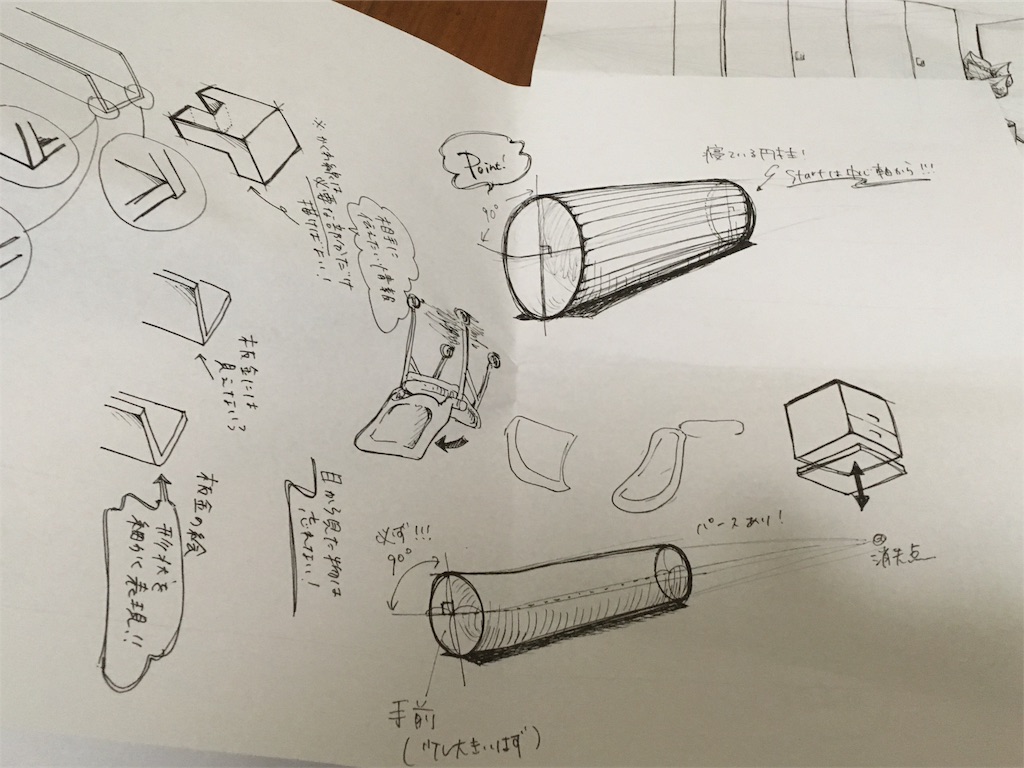 Point!
90°
寝ている円柱!
Startは中心軸から!!!
※かくれ線は
必要な部分だけ
描けばよい!
相手に
伝えたい情報
板金には
見えない?
板金の絵
形状を
細かく表現!!
目から見た物は
忘れない!
必ず!!!
90°
パースあり!
消失点
手前
(少し大きいはず)